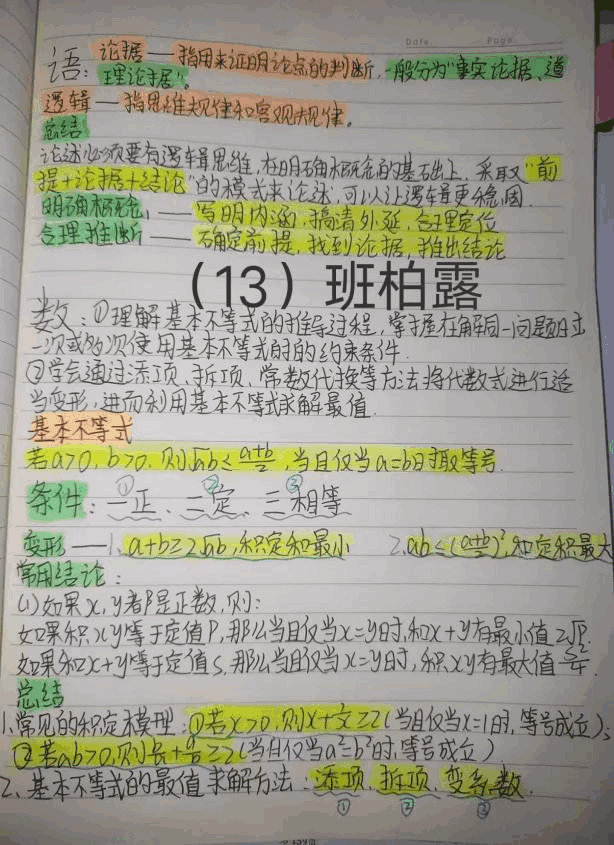 Date. Page.
语: 论据 — 指用来证明论点的判断, 一般分为"事实论据、道
理论据"。
逻辑 — 指思维规律和客观规律。
总结
论述必须要有逻辑思维, 在明确概念的基础上, 采取"前
提+论据+结论"的模式来论述, 可以让逻辑更稳固.
明确概念, —— 写明内涵, 搞清外延, 合理定位
合理推断 —— 确定前提, 找到论据, 推出结论
(13)班柏露
数: ①理解基本不等式的推导过程, 掌握在解同一问题时
一次或多次使用基本不等式时的约束条件.
②学会通过添项、拆项、常数代换等方法将代数式进行适
当变形, 进而利用基本不等式求解最值.
基本不等式
若a>0, b>0, 则√ab≤(a+b)/2, 当且仅当a=b时取等号.
① ② ③
条件: 一正、二定、三相等
变形 — 1. a+b≥2√ab, 积定和最小 2. ab≤((a+b)/2)², 和定积最大
常用结论:
(1)如果x, y都是正数, 则:
如果积xy等于定值P, 那么当且仅当x=y时, 和x+y有最小值2√P.
如果和x+y等于定值s, 那么当且仅当x=y时, 积xy有最大值s²/4.
总结
1.常见的积定模型: ①若x>0, 则x+1/x≥2(当且仅当x=1时, 等号成立);
②若ab>0, 则b/a+a/b≥2(当且仅当a²=b²时, 等号成立)
2、基本不等式的最值求解方法: 添项、拆项、变系数.
① ② ③